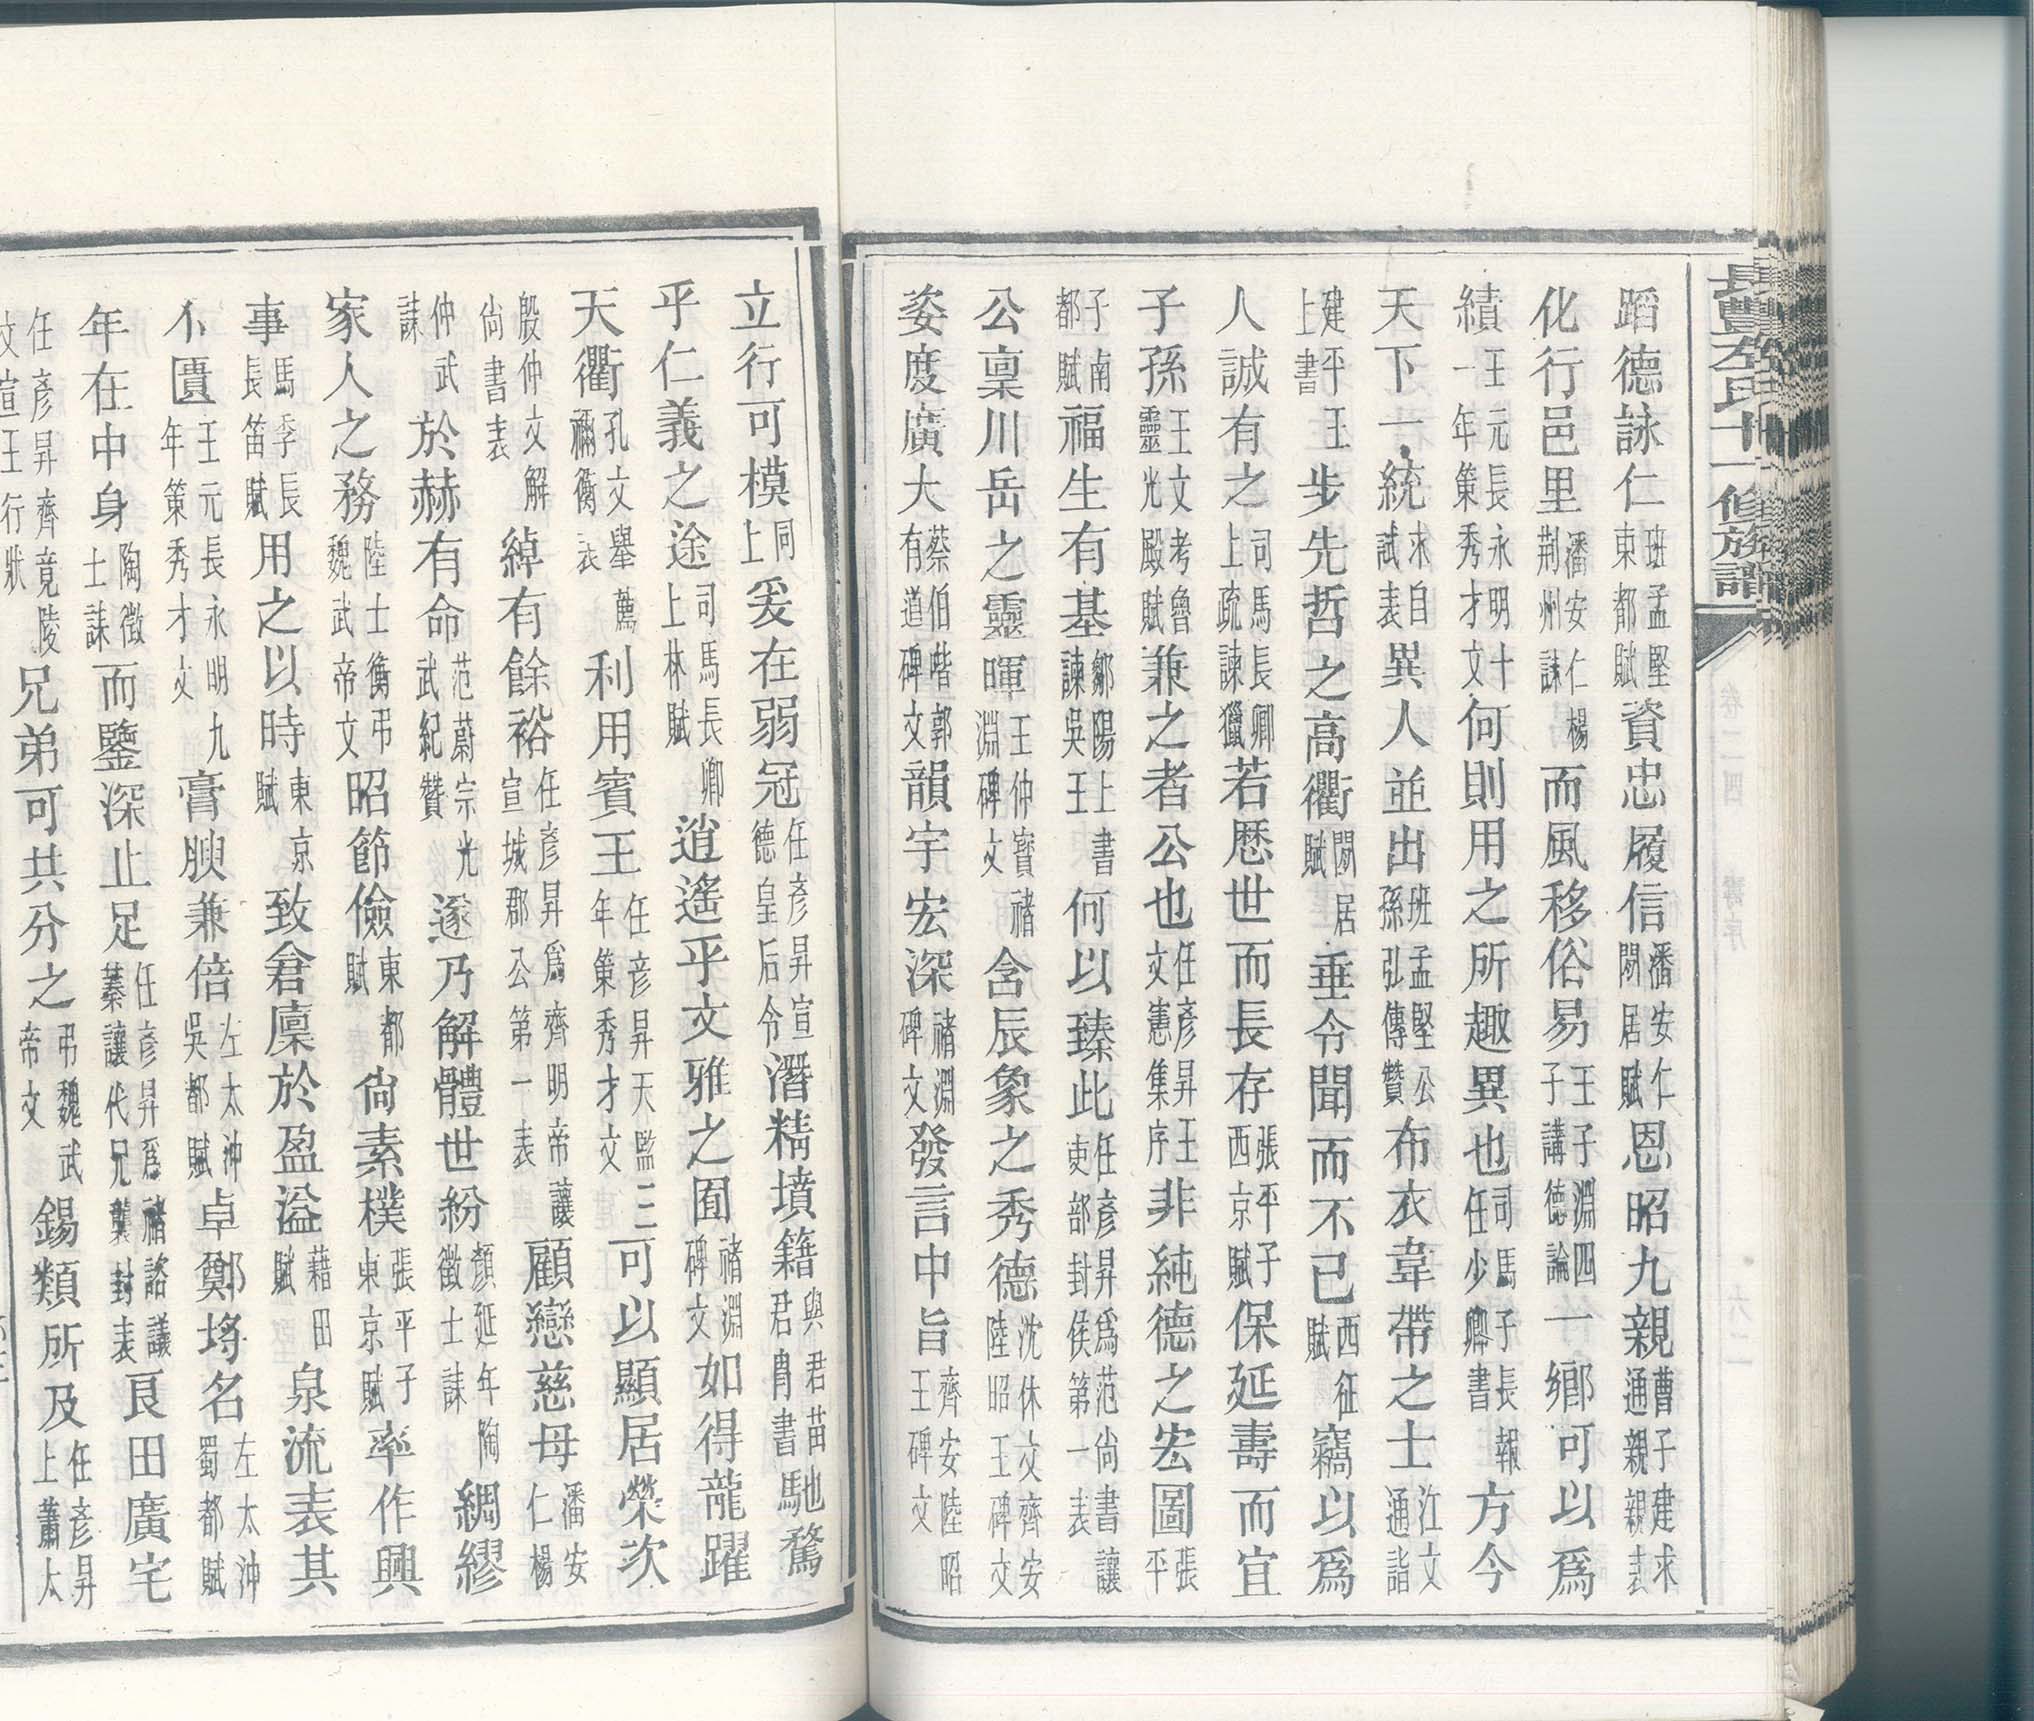 氏十一修族譜
卷二四 壽序 六二
蹈德詠仁班孟堅東都賦資忠履信潘安仁閑居賦恩昭九親曹子建求通親親表
化行邑里潘安仁楊荆州誄而風移俗易王子淵四子講德論一鄉可以爲
績王元長永明十一年策秀才文何則用之所趣異也司馬子長報任少卿書方今
天下一統求自試表異人並出班孟堅公孫弘傳贊布衣韋帶之士江文通詣
建平王上書步先哲之高衢閑居賦垂令聞而不已西征賦竊以爲
人誠有之司馬長卿上疏諫獵若歷世而長存張平子西京賦保延壽而宜
子孫王文考魯靈光殿賦兼之者公也任彥昇王文憲集序非純德之宏圖張平
子南都賦福生有基鄒陽上書諫吳王何以臻此任彥昇爲范尚書讓吏部封侯第一表
公稟川岳之靈暉王仲寶褚淵碑文含辰象之秀德沈休文齊安陸昭王碑文
姿度廣大蔡伯喈郭有道碑文韻宇宏深褚淵碑文發言中旨齊安陸昭王碑文
立行可模同上爰在弱冠任彥昇宣德皇后令潛精墳籍與君苗君冑書馳騖
乎仁義之途司馬長卿上林賦逍遙乎文雅之囿褚淵碑文如得龍躍
天衢孔文舉薦禰衡表利用賓王任彥昇天監三年策秀才文可以顯居榮次
殷仲文解尚書表綽有餘裕任彥昇爲齊明帝讓宣城郡公第一表顧戀慈母潘安仁楊
仲武誄於赫有命范蔚宗光武紀贊遂乃解體世紛顏延年陶徵士誄綢繆
家人之務陸士衡弔魏武帝文昭節儉東都賦尙素樸張平子東京賦率作興
事馬季長長笛賦用之以時東京賦致倉廩於盈溢藉田賦泉流表其
不匱王元長永明九年策秀才文膏腴兼倍左太沖吳都賦卓鄭埒名左太沖蜀都賦
年在中身陶徵士誄而鑒深止足任彥昇爲褚諮議蓁讓代兄襲封表良田廣宅
任彥昇齊竟陵文宣王行狀兄弟可共分之弔魏武帝文錫類所及任彥昇上蕭太